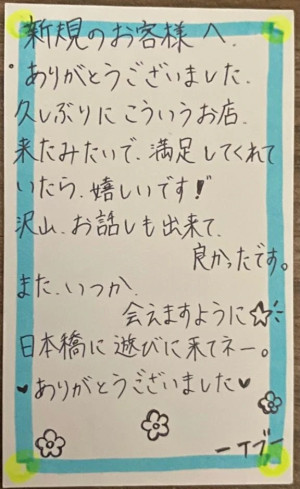 新規のお客様へ.
ありがとうございました.
久しぶりにこういうお店.
来たみたいで.満足してくれて
いたら.嬉しいです!
沢山.お話しも出来て.
良かったです。
また.いつか.
会えますように☆
日本橋に遊びに来てネー。
♥ありがとうございました♥
ーイブー